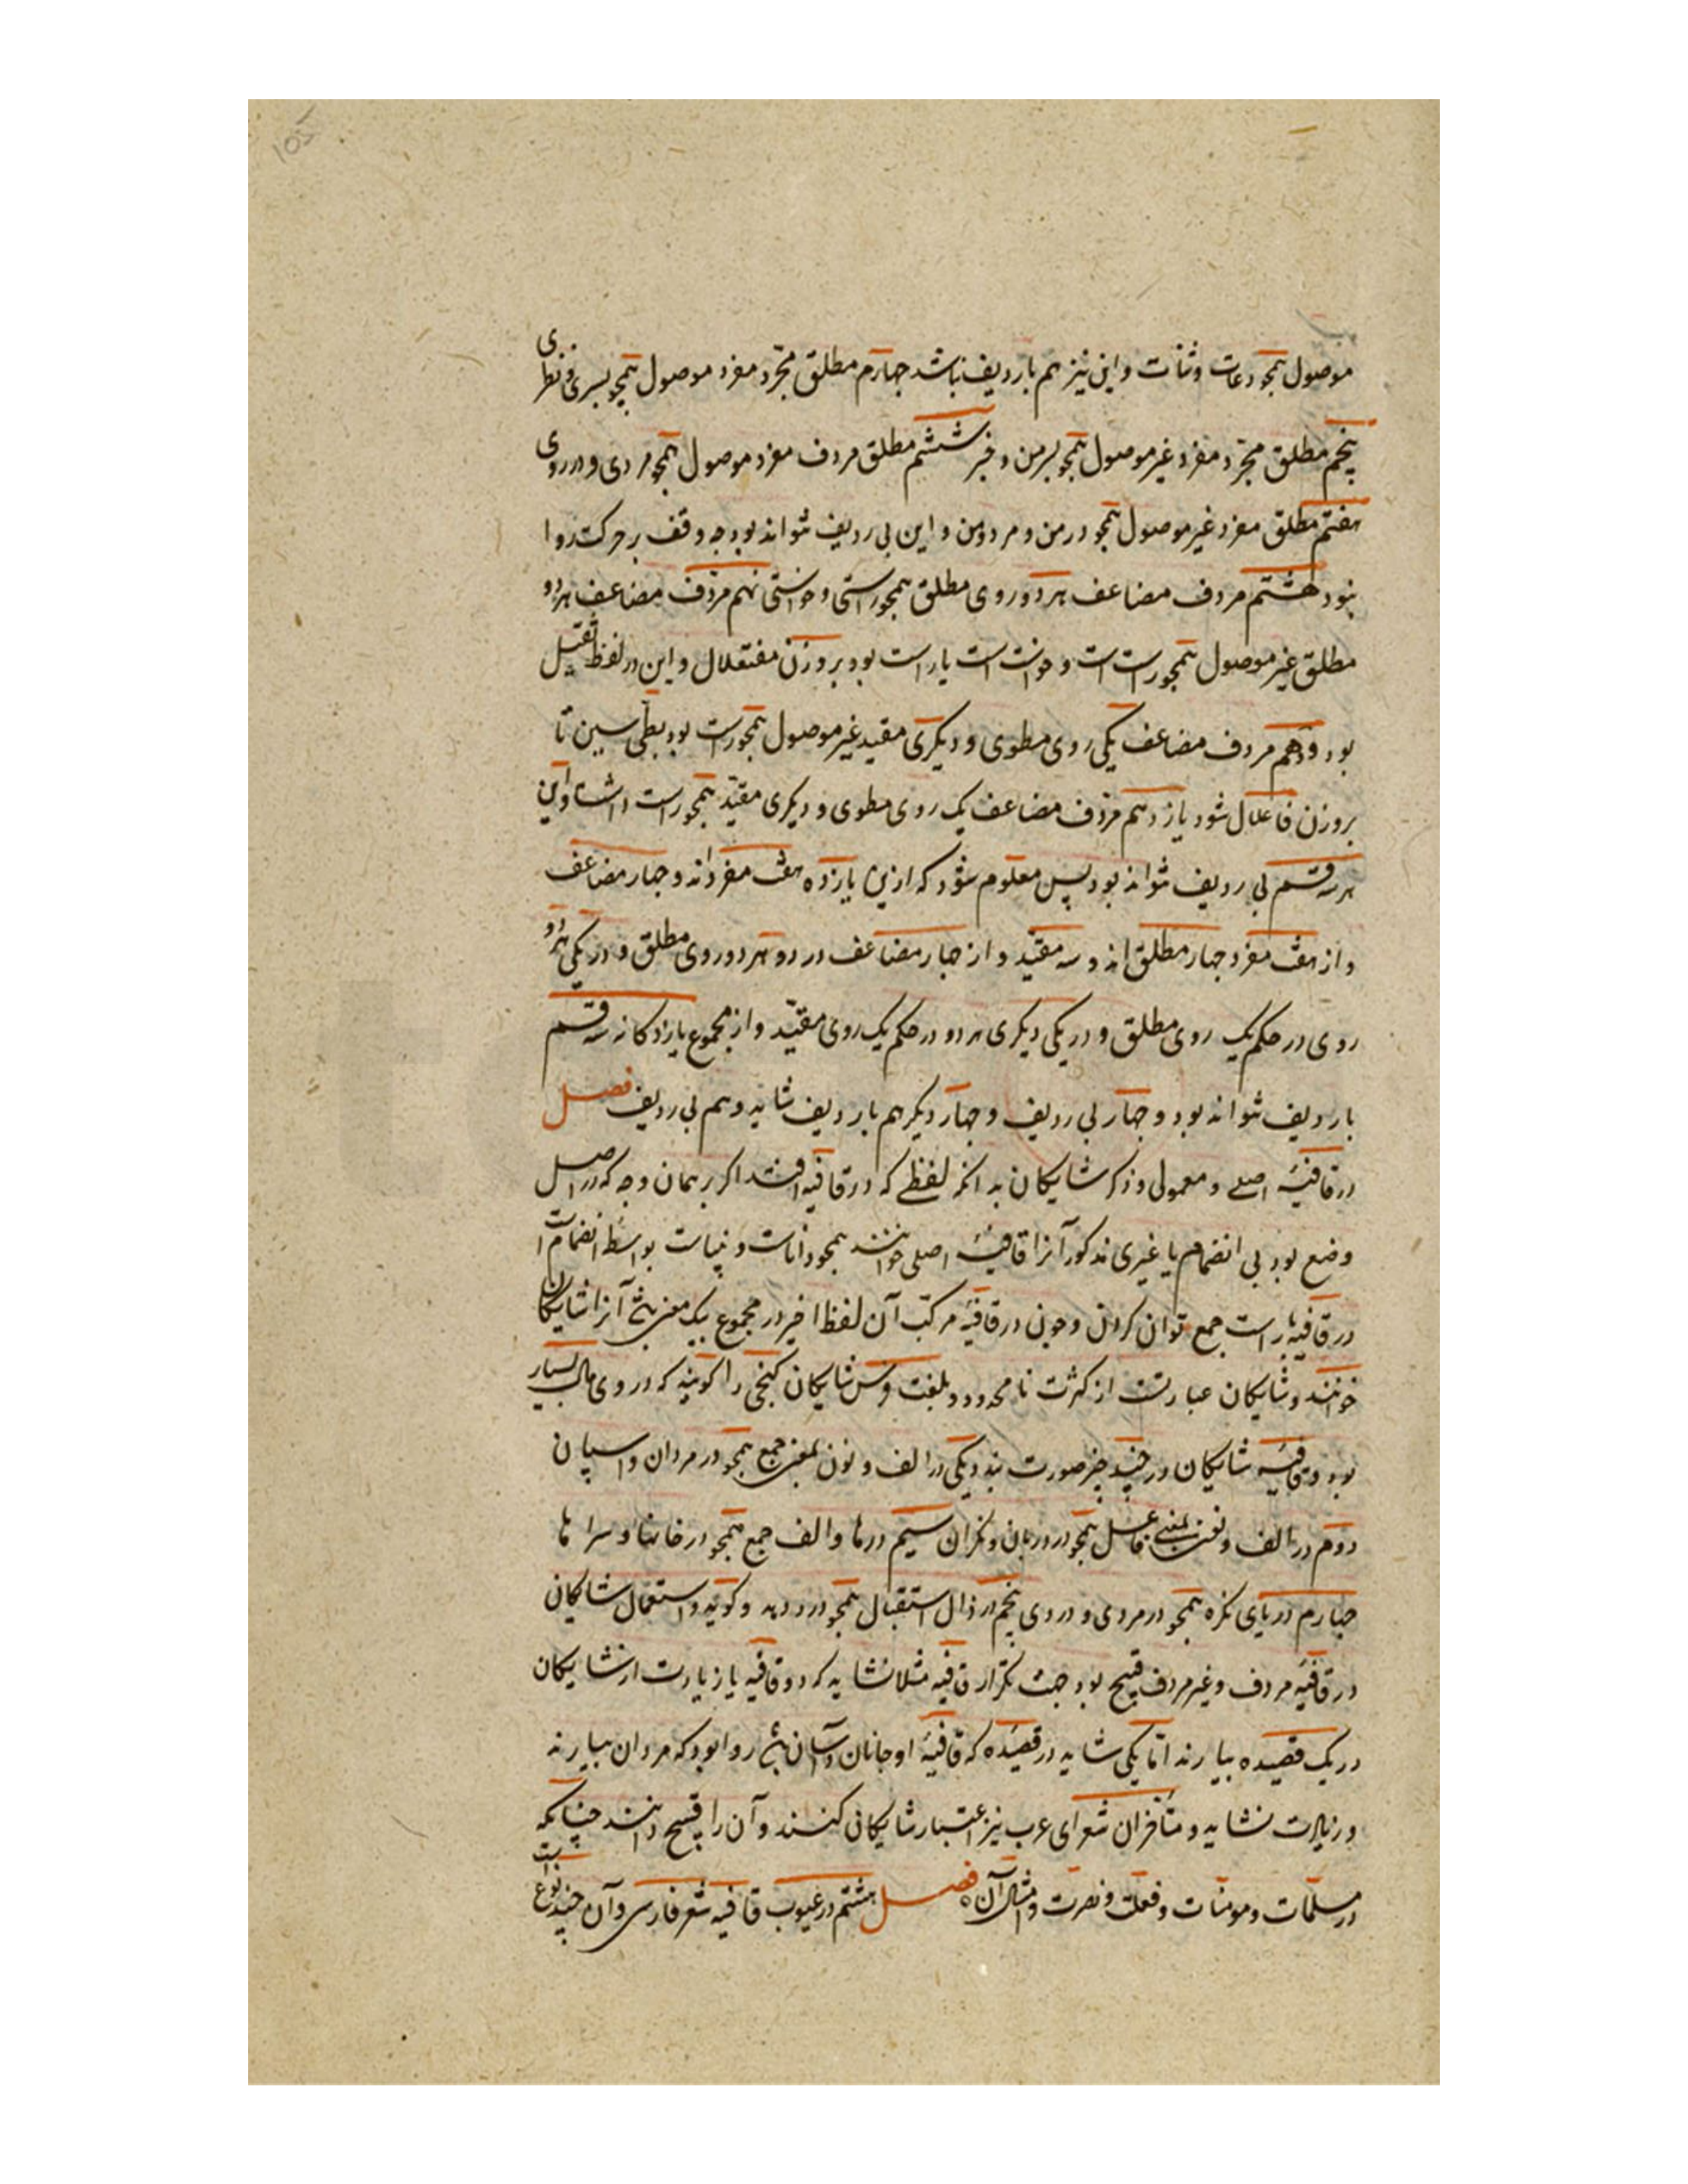 105
موصول همچو دعات و ثنات و این نیز هم باردیف نباشد چهارم مطلق مجرّد مفرد موصول همچو بسری و نظری
پنجم مطلق مجرّد مفرد غیر موصول همچو برمن و ششم مطلق مردف مفرد موصول همچو مردی و دروی
هفتم مطلق مفرد غیر موصول همچو درمن و مردمن و این بی ردیف نتواند بود چه وقف بر حرکت روا
نبود هشتم مردف مضاعف هر دو روی مطلق همچو راستی و خواستی نهم مردف مضاعف هر دو
مطلق غیر موصول همچو راست است و خواست است یا راست بود بر وزن مفتعلال و این در لفظ ثقیل
بود و دهم مردف مضاعف یکی روی مطوی و دیگری مقید غیر موصول همچو راست بود بطی سین تا
بر وزن فاعلال شود یازدهم مردف مضاعف یک روی مطوی و دیگری مقیّد همچو راست و این
هر سه قسم بی ردیف نتواند بود پس معلوم شود که ازین یازده هفت مفرداند و چهار مضاعف
و از هفت مفرد چهار مطلق اند و سه مقیّد و از چهار مضاعف در دو هر دو روی مطلق و در یکی هر دو
روی در حکم یک روی مطلق و در یکی دیگری هر دو در حکم یک روی مقیّد و از مجموع یازدکانه سه قسم
باردیف نتواند بود و چهار بی ردیف و چهار دیگر هم باردیف شاید و هم بی ردیف فصل
در قافیهٔ اصلی و معمولی و ذکر شایکان بدانکه لفظی که در قافیه افتد اکر بر همان وجه که در اصل
وضع بود بی انضمام با غیری مذکور آنرا قافیهٔ اصلی خوانند همچو ذات و نبات بواسطهٔ انضمام است
در قافیه با راست جمع توان کردن و چون در قافیهٔ مرکب آن لفظ اخیر در مجموع بیک معنی باشد آنرا شایکان
خوانند و شایکان عبارتست از کثرت نامحدود و بلغت فرس شایکان کنجی را کویند که در وی مال بسیار
بود و قافیهٔ شایکان در چند چیز صورت بندد یکی در الف و نون بمعنی جمع همچو در مردان و اسپان
دوم در الف و نون بمعنی فاعل همچو در دربان و نکران سیم در ها و الف جمع همچو در خانها و سراها
چهارم در یای نکره همچو در مردی و دردی پنجم در دال استقبال همچو در دهد و کوید و استعمال شایکان
در قافیهٔ مردف و غیر مردف قبیح بود جهت تکرار قافیه مثلا نشاید که دو قافیه یا زیادت از شایکان
در یک قصیده بیارند امّا یکی شاید در قصیده که قافیهٔ او جانان و آسان باشد روا بود که مردان بیارند
و زیادت نشاید و متأخران شعرای عرب نیز اعتبار شایکانی کنند و آن را قبیح دانند چنانکه
در مسلمات و مومنات و فعلت و نصرت و امثال آن فصل هشتم در عیوب قافیه شعر فارسی و آن چند نوع است